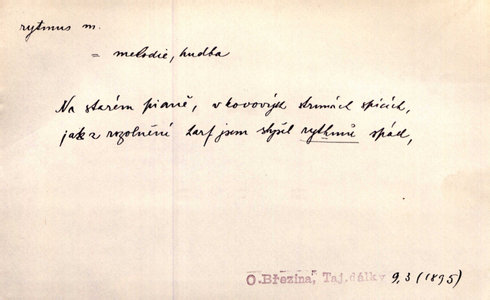 rytmus m.
= melodie, hudba
Na starém pianě, v kovových strunách spících,
jak z rozolnění harf jsem slyšel rythmů spád,
O. Březina, Taj. dálky 9, 3 (1895)